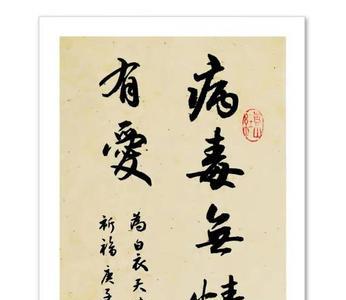 病毒無情
有愛
為白衣天
祈福庚子